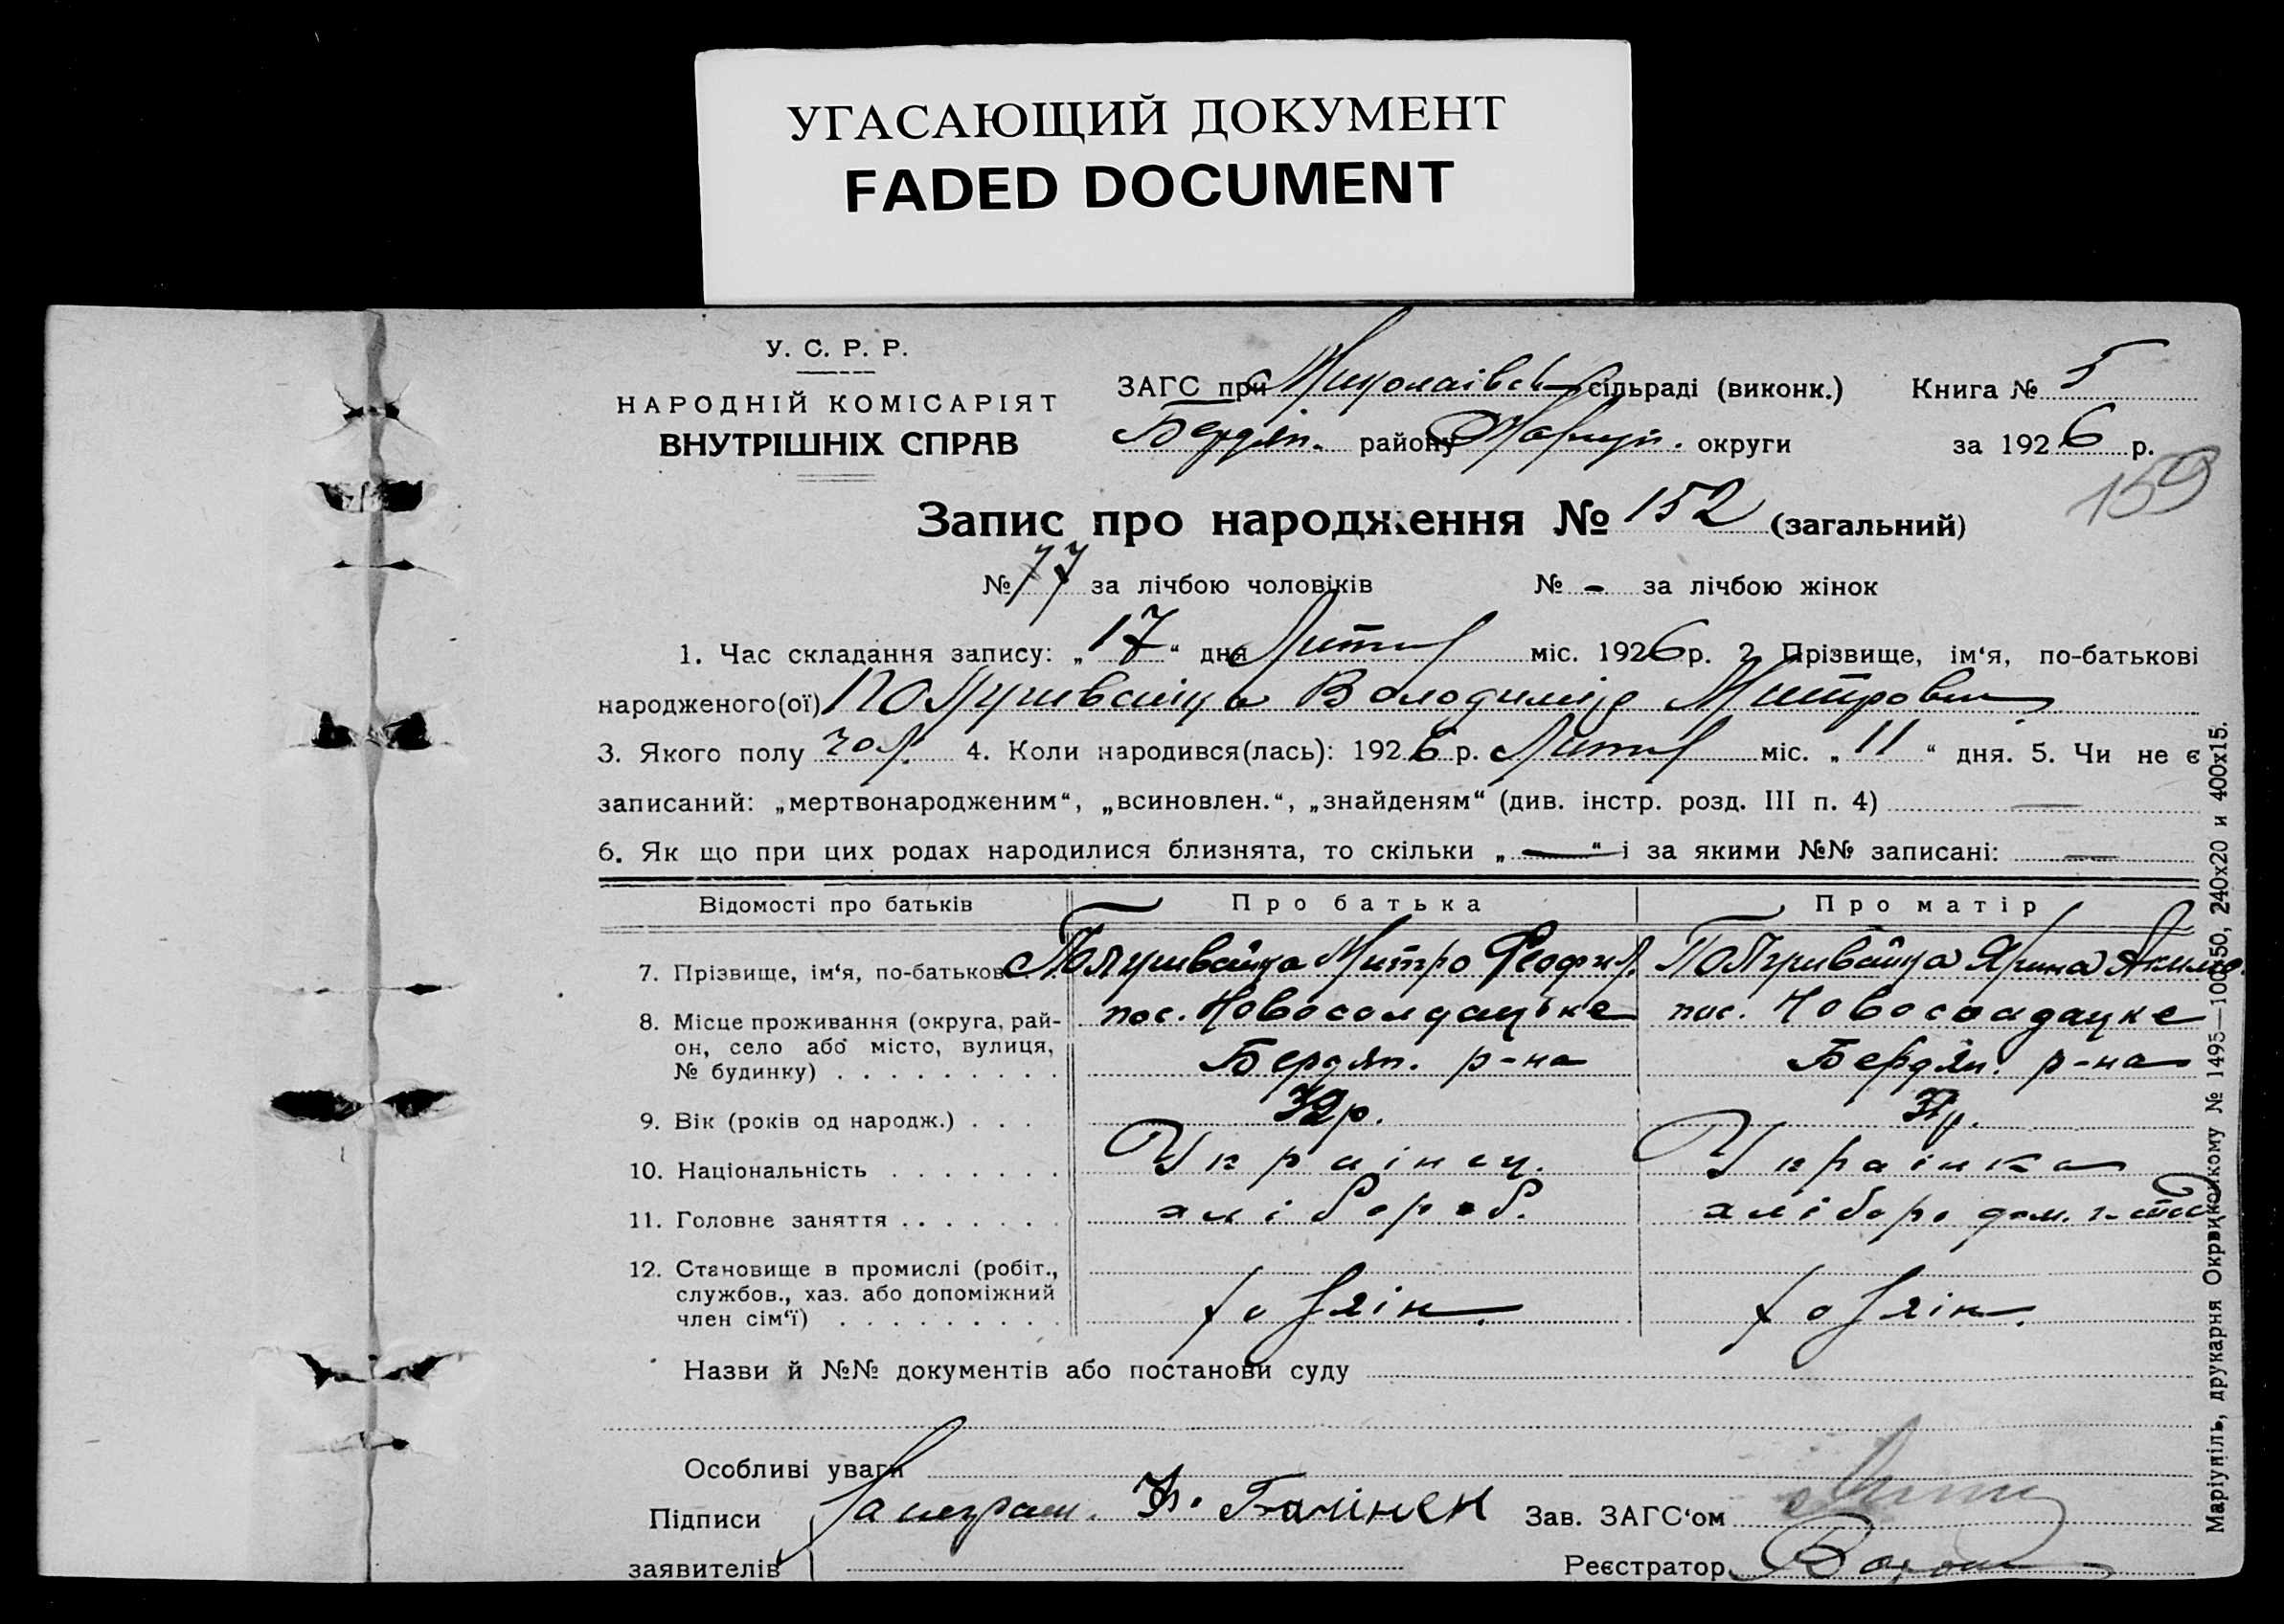 УГАСАЮЩИЙ ДОКУМЕНТ
FADED DOCUMENT
У. С. Р. Р.
НАРОДНІЙ КОМІСАРІЯТ
ВНУТРІШНІХ СПРАВ
ЗАГС при Миколаівськ сільраді (виконк.) Книга № 5
Бердян. району Маріуп. округи за 1926 р.
159
Запис про народження № 152 (загальний)
№ 77 за лічбою чоловіків № - за лічбою жінок
1. Час складання запису: „17“ дня Лютий міс. 1926 р. 2. Прізвище, ім‘я, по-батькові
народженого(ої) Володимір Митрович
3. Якого полу чол. 4. Коли народився(лась): 1926 р. Лютий міс. „11“ дня. 5. Чи не є
записаний: „мертвонародженим“, „всиновлен.“, „знайденям“ (див. інстр. розд. III п. 4) —
6. Як що при цих родах народилися близнята, то скільки „—“ і за якими №№ записані: —
Відомості про батьків Про батька Про матір
7. Прізвище, ім‘я, по-батькові Митро Феофил. Ярина Аким.
8. Місце проживання (округа, рай- пос. Новосолдацьке пос. Новосолдацке
он, село або місто, вулиця, Бердян. р-на Бердян. р-на
№ будинку) . . . . . . . . .
9. Вік (років од народж.) . . . 32 р. 31 р.
10. Національність . . . . . . . Українец. Українка
11. Головне заняття . . . . . . . хлібороб. хліборо дом. г-ство
12. Становище в промислі (робіт.,
службов., хаз. або допоміжний хозяін. хозяін.
член сім‘ї) . . . . . . . . .
Назви й №№ документів або постанови суду
Особливі уваги
Підписи Зав. ЗАГС‘ом
заявителів Реєстратор
Маріупіль, друкарня Окрвиконкому № 1495—100×50, 240х20 и 400х15.